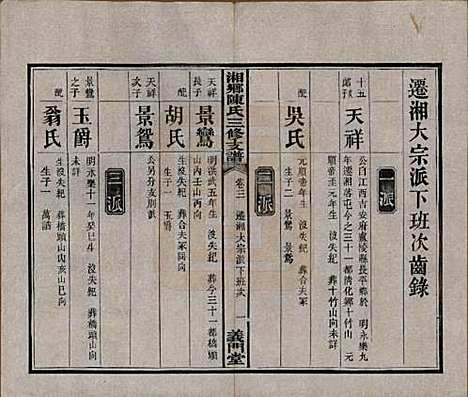 遷湘大宗派下班次齒錄
一派
十五
郎次
天祥
公自江西吉安府廬陵縣長平鄉於明永樂九
年遷湘落屯今之三十一都清化鄉十竹山元
順帝年生沒失紀葬十竹山向未詳
配
吳氏
元順帝年生沒失紀葬合夫冢
生子二景鸞景鴛
湘鄉陳氏三修支譜
卷三
遷湘大宗派下班次
一
義門堂
二派
天祥
長子
景鸞
明洪武五年生沒失紀葬今三十一都
山內壬山丙向
配
胡氏
生沒失紀葬合夫冢同向
生子一玉爵
天祥
次子
景鴛
公另分支別派
三派
景鸞
之子
玉爵
明永樂十一年癸巳生沒失紀葬橋頭山向
未詳
配
翁氏
生沒失紀葬橋頭山亥山巳向
生子一萬諾